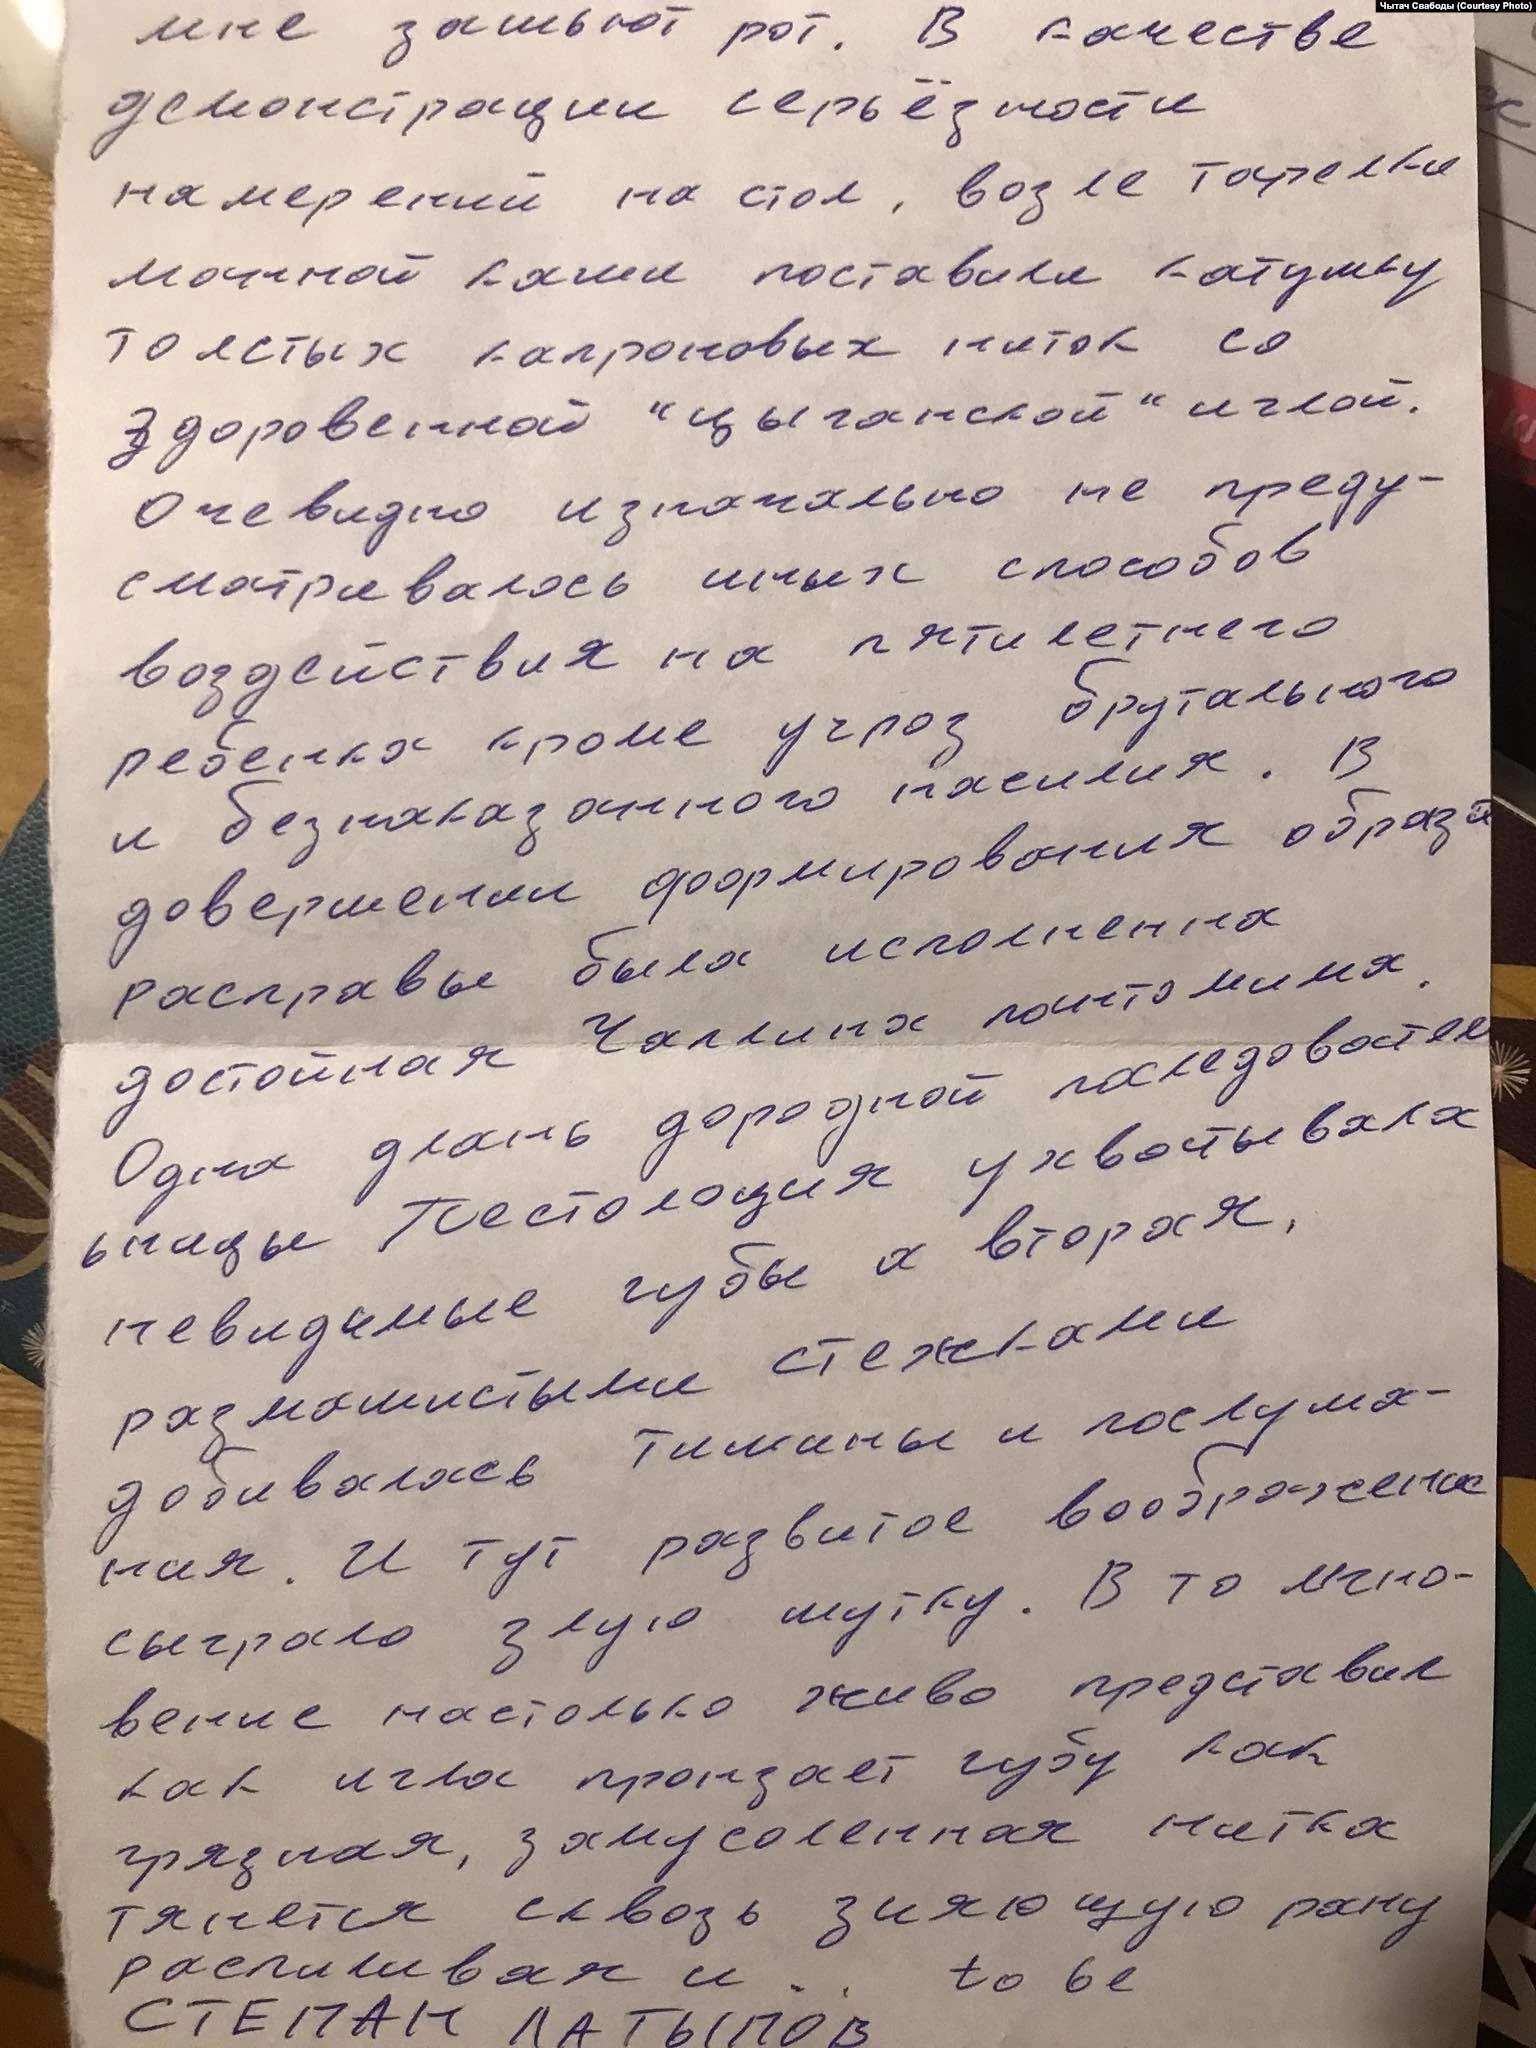 Чытач Свабоды (Courtesy Photo)
мне зашьют рот. В качестве
демонстрации серьёзности
намерений на стол, возле тарелки
манной каши поставили катушку
толстых капроновых ниток со
здоровенной "цыганской" иглой.
Очевидно изначально не преду-
сматривалось иных способов
воздействия на пятилетнего
ребенка кроме угроз брутального
и безнаказанного насилия. В
довершении формирования образа
расправы была исполненна
достойная Чаплина пантомима.
Одна длань дородной последовател
ьницы Песталоция ухватывала
невидимые губы а вторая,
размашистыми стежками
добивалась тишины и послуша-
ния. И тут развитое воображение
сыграло злую шутку. В то мгно-
вение настолько живо представил
как игла пронзает губу как
грязная, замусоленная нитка
тянется сквозь зияющую рану
распиливая и... to be
СТЕПАН ЛАТЫПОВ